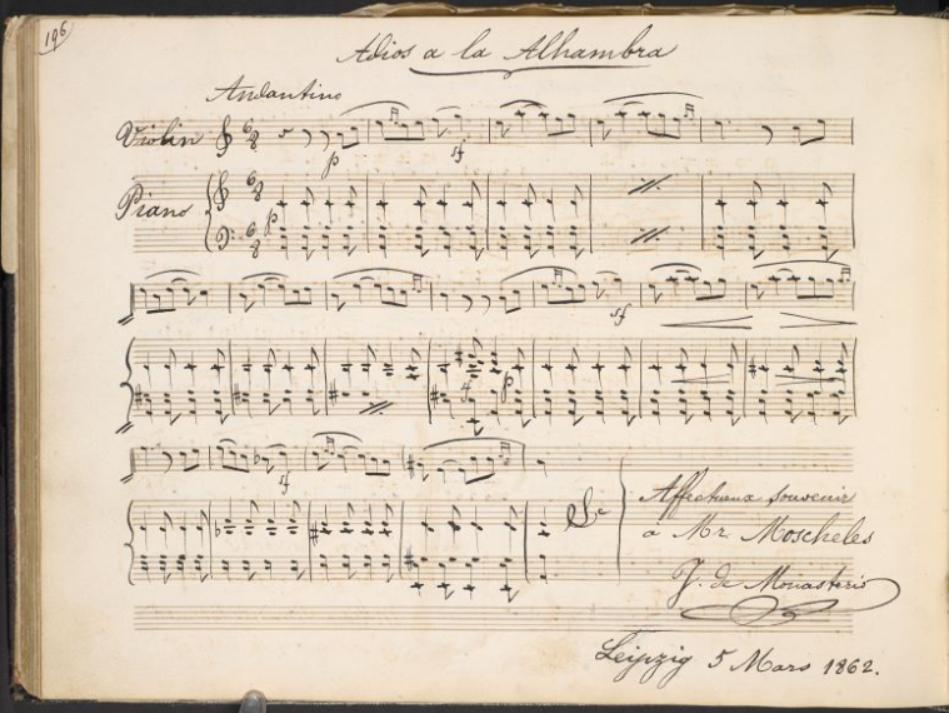 196
Adios a la Alhambra
Andantino
Violin 6/8
p
sf
Piano 6/8
p
6/8
sf
p
sf
&c
Affectueux souvenir
à Mr. Moscheles
J. de Monasterio
Leipzig 5 Mars 1862.